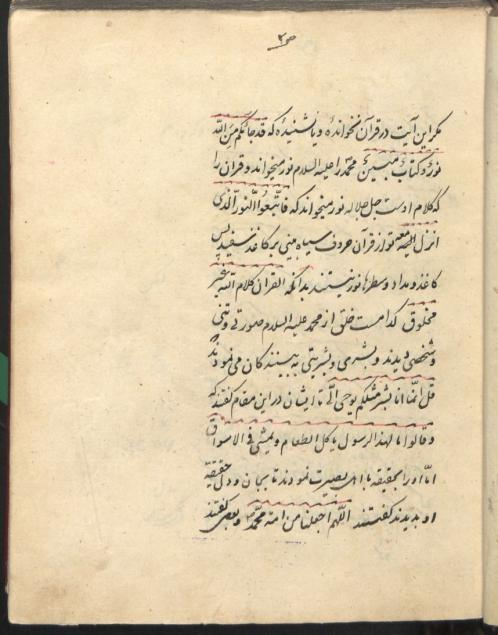 ص۳
مکر این آیت در قرآن نخواندهٔ و یا نشنیدهٔ که قد جائکم من الله
نورٌ و کتابٌ مبینٌ محمد را علیه السلام نور میخواند و قران را
که کلام اوست جل جلاله نور میخواند که فاتّبعوا النور الّذی
انزل معه تو از قرآن حروف سیاه مینی بر کاغذ سفید پس
کاغذ و مداد و سطرها نور نیستند بدانکه القران کلام الله غیر
مخلوق کدامست خلق از محمد علیه السلام صورتی و تنی
و شخصی دیدند و بشری و بشریتی به بینندکان می نمودند
قل انّما انا بشر مثلکم یوحی الیّ تا ایشان در این مقام کفتند که
و قالوا ما لهذا الرسول یاکل الطعام و یمشی فی الاسواق
امّا او را بحقیقه با اهل بصیرت نمودند تا بجان و دل حقیقة
او بدیدند کفتند اللّهم اجعلنا من امة محمّد و بعضی کفتند